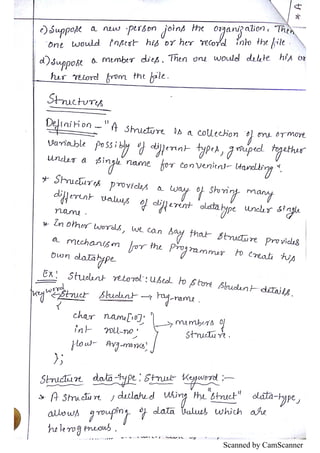 c) Suppose a new person joins the organization. Then
one would insert his or her record into the file.
d) Suppose a member dies. Then one would delete his or
her record from the file.
Structures
Definition - "A structure is a collection of one or more
variable possibly of different types, grouped together
under a single name for convenient Handling".
* Structures provides a way of storing many
different values of different datatype under single
name.
* In other words, we can say that structure provides
a mechanism for the programmer to create his
own datatype
Ex: Student record: used to store student details.
Keyword Struct Student → tag-name.
{
char name[10];
int roll-no; → members of
float Avg-marks; structure.
};
Structure data-type: Struct Keyword :-
* A Structure, declared using the "Struct" data-type,
allows grouping of data values which are
heterogeneous.
Scanned by CamScanner